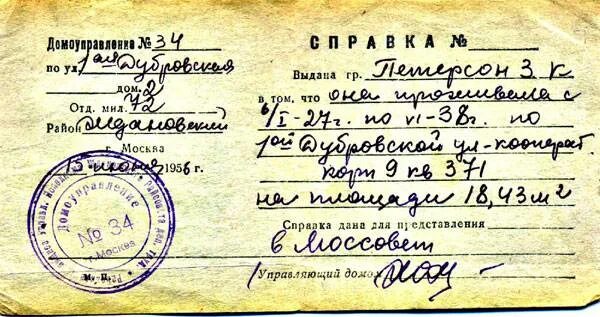 Домоуправление № 34
по ул. 1ая Дубровская
дом. 2
Отд. мил. 72
Район Ждановский
г. Москва
15 июня 1956 г.
Домоуправление
№ 34
г. Москва
М. П.
СПРАВКА №
Выдана гр. Петерсон З. К
в том, что она проживала с
6/I-27г. по VI-38г. по
1ой Дубровской ул-кооперат.
корп 9 кв 371
на площади 18,43 м2
Справка дана для представления
в Моссовет
Управляющий домом